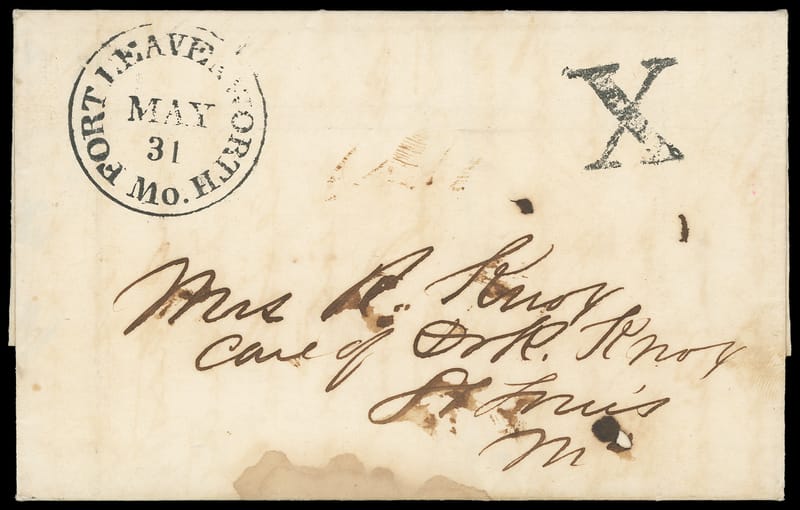 FORT LEAVENWORTH Mo.
MAY
31
X
Mrs R. Knox
Care of Dr R. Knox
St Louis
Mo